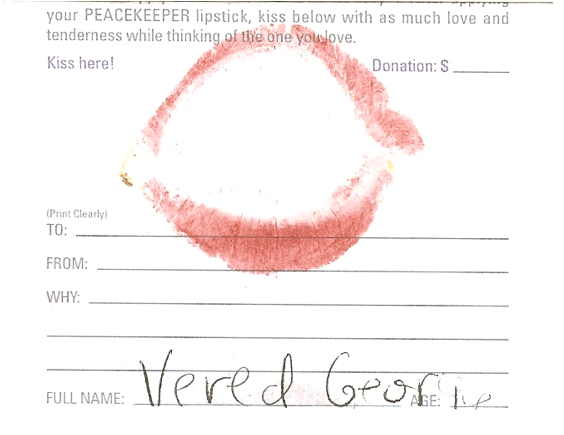 your PEACEKEEPER lipstick, kiss below with as much love and
tenderness while thinking of the one you love.
Kiss here! Donation: $
(Print Clearly)
TO:
FROM:
WHY:
FULL NAME: Vered AGE: